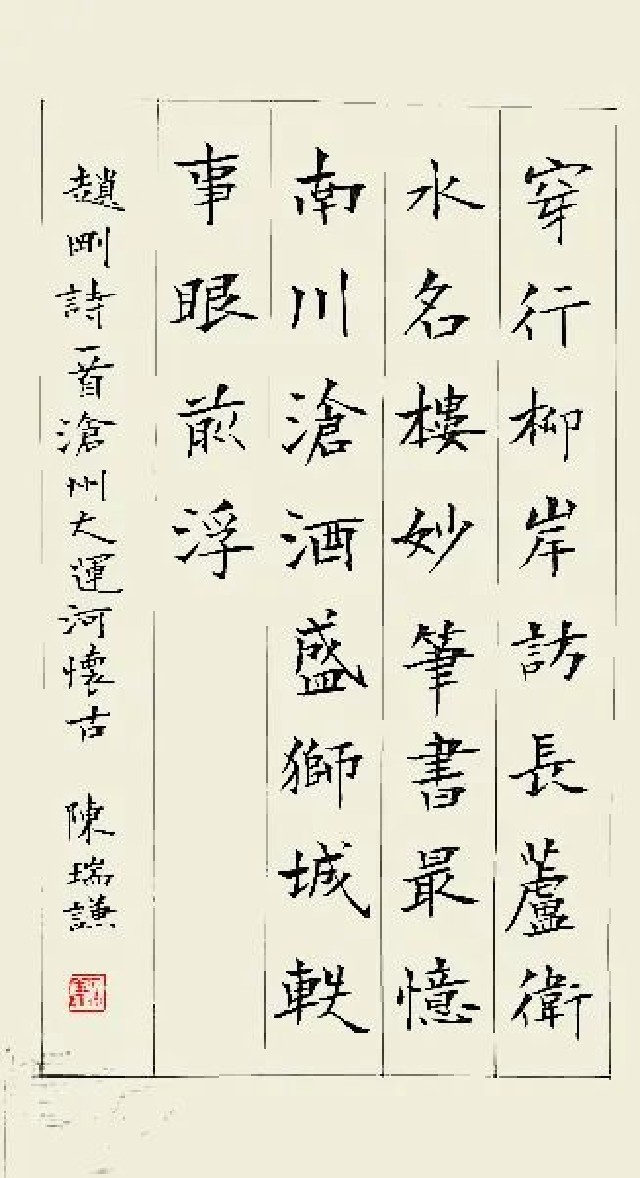 穿行柳岸訪長蘆衛
水名樓妙筆書最憶
南川滄酒盛獅城軼
事眼前浮
趙剛詩一首滄州大運河懷古 陳瑞謙